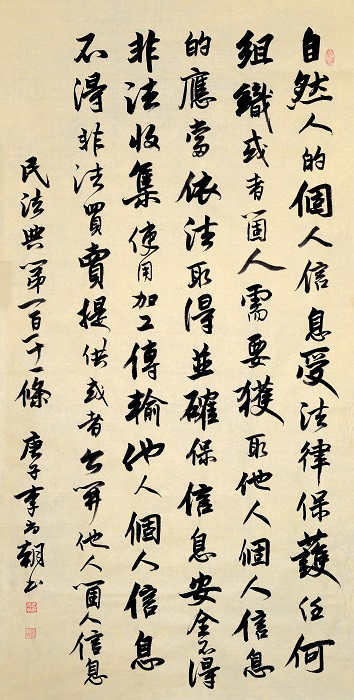 自然人的個人信息受法律保護任何
組織或者個人需要獲取他人個人信息
的應當依法取得並確保信息安全不得
非法收集使用加工傳輸他人個人信息
不得非法買賣提供或者公開他人個人信息
民法典第一百一十一條 庚子李為朝書